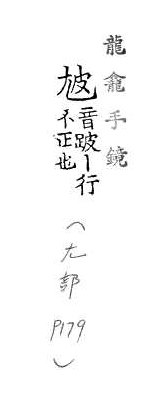 龍龕手鏡
音跛丨行
不正也
(尢部 P179)